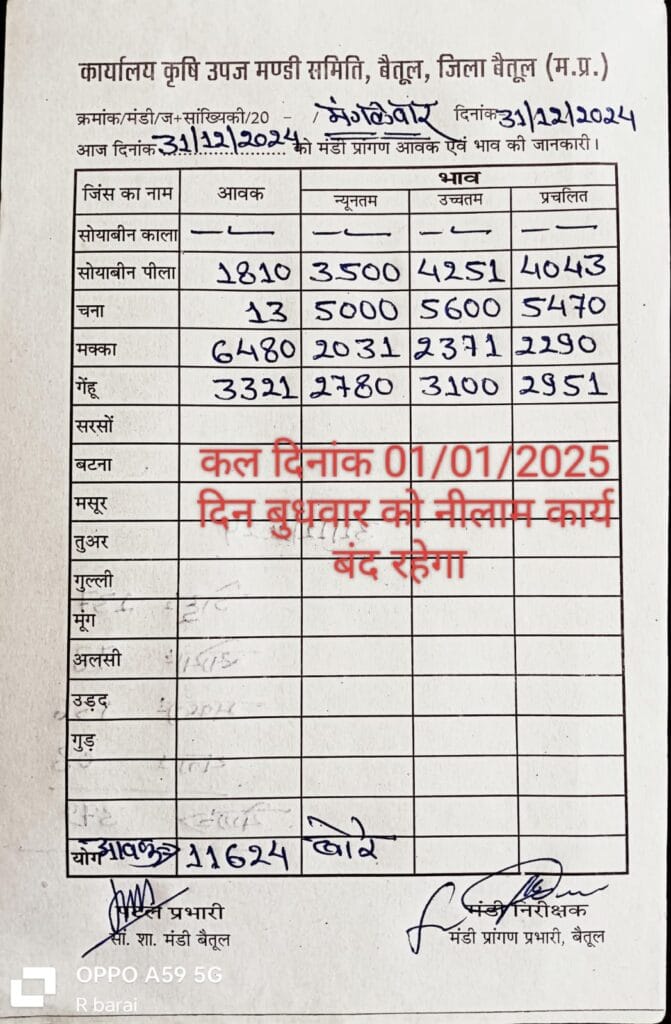 कार्यालय कृषि उपज मण्डी समिति, बैतूल, जिला बैतूल (म.प्र.)
क्रमांक/मंडी/ज+सांख्यिकी/20 - / मंगलवार दिनांक 31/12/2024
आज दिनांक 31/12/2024 को मंडी प्रांगण आवक एवं भाव की जानकारी।
जिंस का नाम आवक भाव
न्यूनतम उच्चतम प्रचलित
सोयाबीन काला — — — — — — — —
सोयाबीन पीला 1810 3500 4251 4043
चना 13 5000 5600 5470
मक्का 6480 2031 2371 2290
गेंहू 3321 2780 3100 2951
सरसों
बटना
मसूर
तुअर
गुल्ली
मूंग
अलसी
उड़द
गुड़
कल दिनांक 01/01/2025
दिन बुधवार को नीलाम कार्य
बंद रहेगा
योग आवक 11624 बोरे
पटल प्रभारी
सां. शा. मंडी बैतूल
मंडी निरीक्षक
मंडी प्रांगण प्रभारी, बैतूल
OPPO A59 5G
R barai